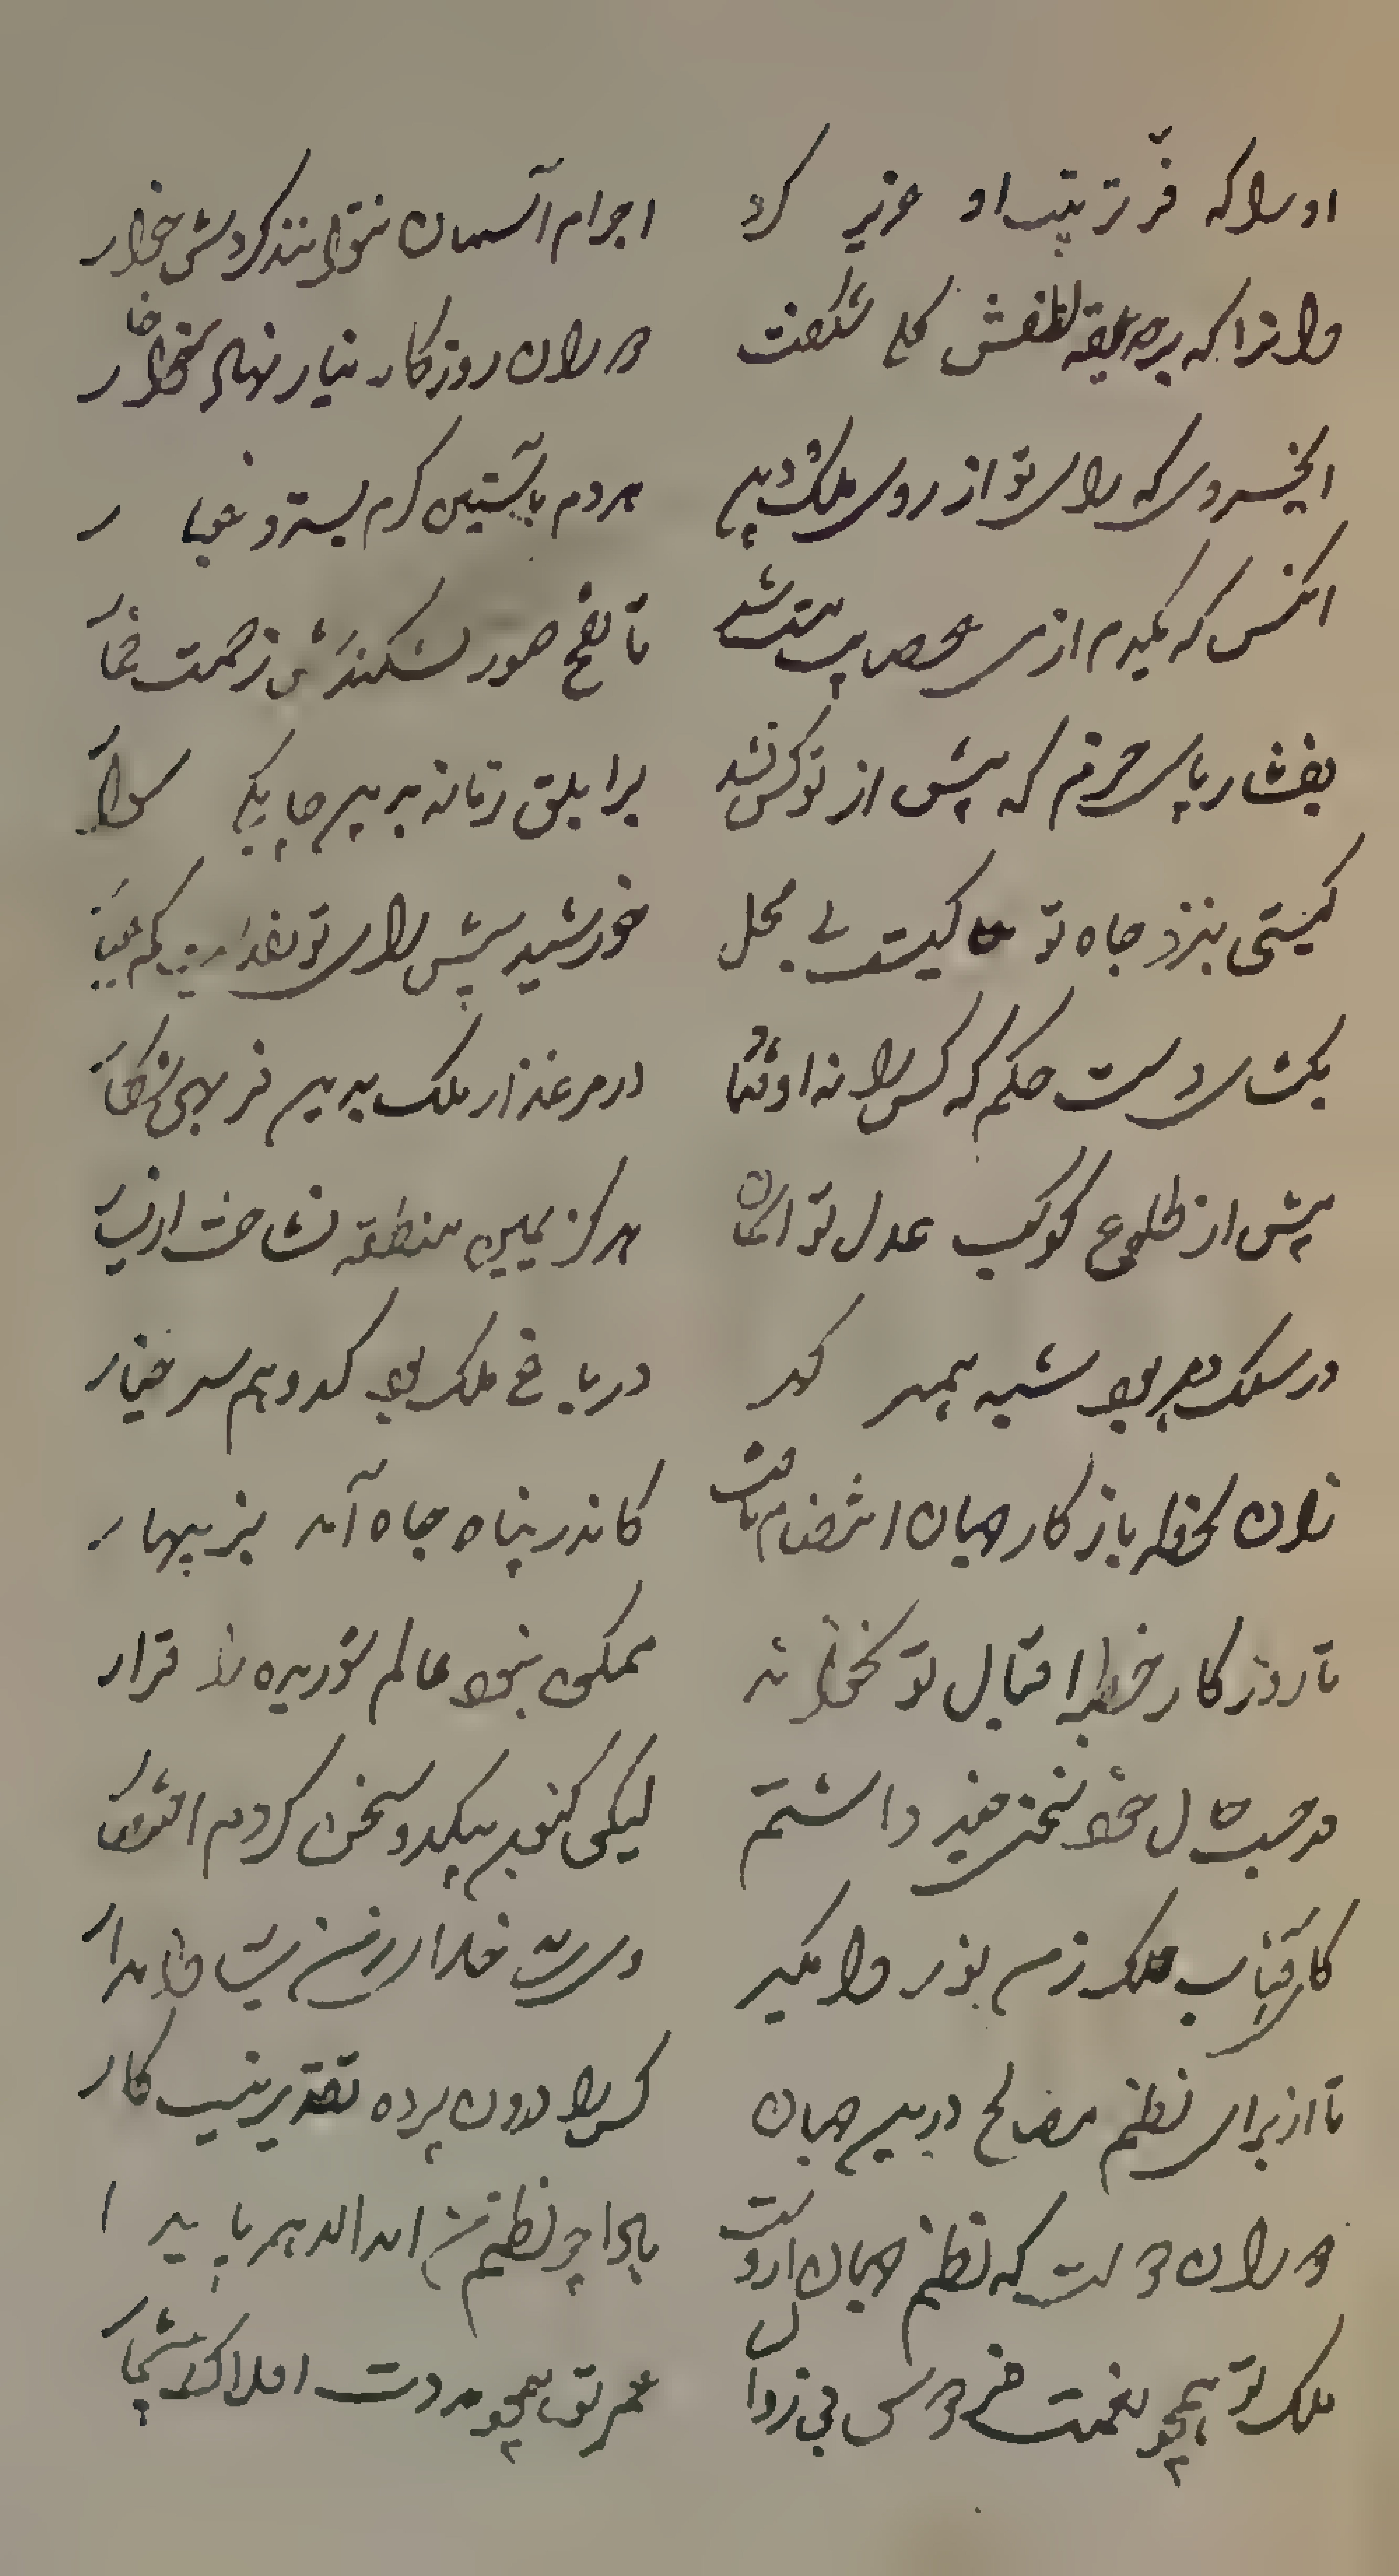 او را که فرّ تربیت او عزیز کرد اجرام آسمان نتوانند کردش خوار
وانرا که بر حدیقه لطفش کلی شکفت دوران روزکار نیارد نهاد خار
ای خسروی که رای تو از روی ملک و دین هر دم بآستین کرم بسترد غبار
انکس که یکدم از می عصیانت مست شد تا نفخ صور نشکندش زحمت خمار
بفشار پای حزم که پیش از تو کس نشد بر ابلق زمانه بدین چابکی سوار
کیتی بنزد جاه تو جاکیست بی محل خورشید پیش رای تو نقدیست کم عیار
بکشای دست حکم که کس را نه اوفتاد در مرغزار ملک بدین فربهی شکار
پیش از طلوع کوکب عدل تو اسمان هرکز یمین منطقه نشاخت از یسار
در سلک دهر بود شبه همبر کهر در باغ ملک بود کدو همسر خیار
زان لحظه باز کار جهان انتظام یافت کاندر پناه جاه تو آمد بزینهار
تا روزکار خطبه اقبال تو نخواند ممکن نبود عالم شوریده را قرار
در حسب حال خود سخنی چند داشتم لیکن کنون بیکدو سخن کردم اختصار
کای آفتاب ملک ز من نور وا مکیر وی سایه خدا ز من سایه وا مدار
تا از برای نظم مصالح درین جهان کس را درون پرده تقدیر نیست کار
دوران دولتت که نظم جهان ازوست بادا چو نظم من ابد الدهر پایدار
ملک تو همچو نعمت فردوس بی زوال عمر تو همچو مدت افلاک بیشمار